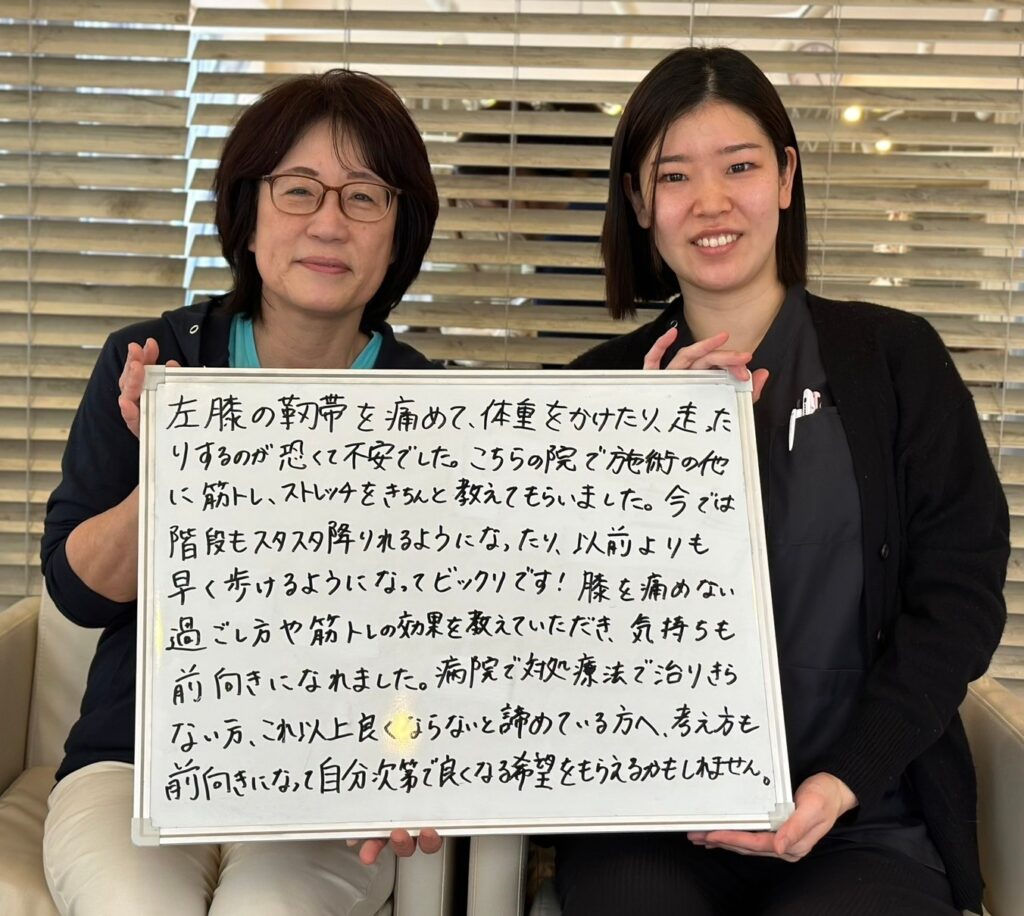 左膝の靭帯を痛めて、体重をかけたり、走った
りするのが恐くて不安でした。こちらの院で施術の他
に筋トレ、ストレッチをきちんと教えてもらいました。今では
階段もスタスタ降りれるようになったり、以前よりも
早く歩けるようになってビックリです！膝を痛めない
過ごし方や筋トレの効果を教えていただき、気持ちも
前向きになれました。病院で対処療法で治りきら
ない方、これ以上良くならないと諦めている方へ、考え方も
前向きになって自分次第で良くなる希望をもらえるかもしれません。